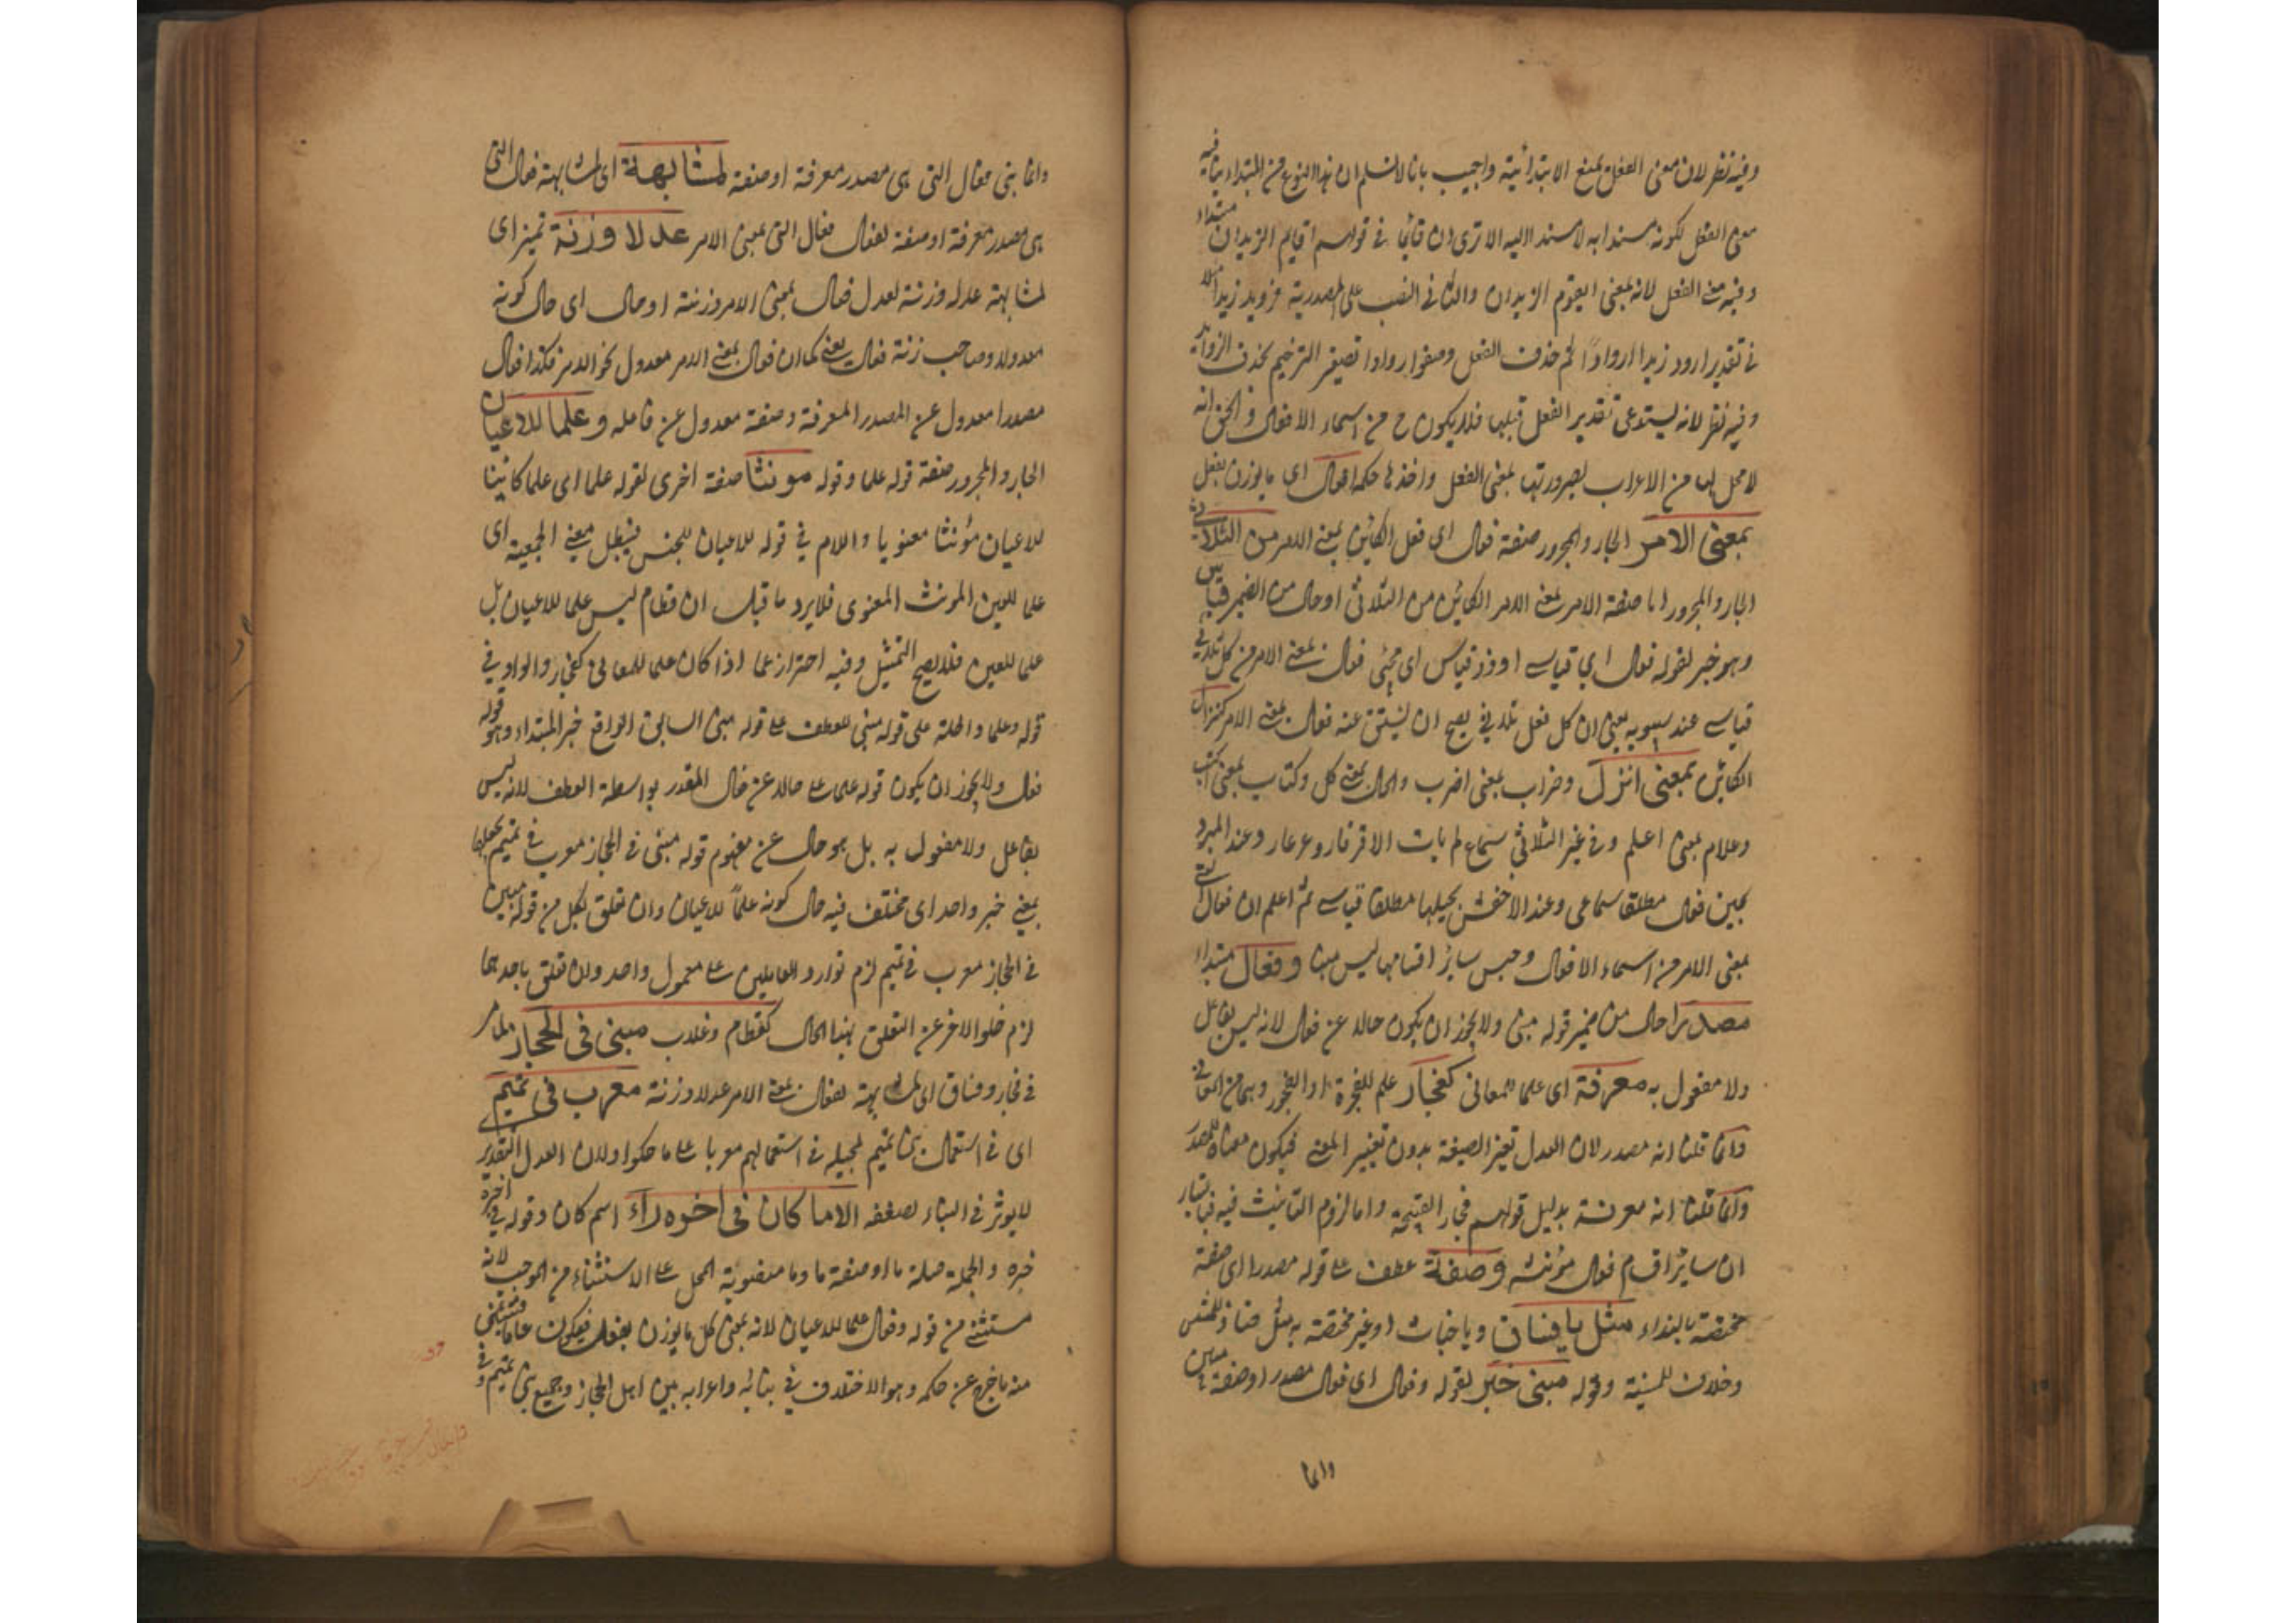 وفيه نظر لان معنى الفعل يمنع الابتدائية واجيب بانا لا نسلم ان هذا النوع من المبتداء ينافيه
معنى الفعل لكونه مسندا به لا مسندا اليه الا ترى ان قائما في قولهم اقايم الزيدان مبتداء
وفيه معنى الفعل لانه بمعنى ايقوم الزيدان والثاني النصب على المصدرية فرويد زيدا مثلا
في تقدير ارود زيدا اروادا ثم حذف الفعل وصغر اروادا تصغير الترخيم بحذف الزوايد
وفيه نظر لانه يستدعى تقدير الفعل قبلها فلا يكون ح من اسماء الافعال والحق انه
لا محل لها من الاعراب لصيرورتها بمعنى الفعل واخذها حكمه فعال اى ما يوزن بفعال
بمعنى الامر الجار والمجرور صفة فعال اى فعال الكائن بمعنى الامر من الثلاثى
الجار والمجرور اما صفة الامر بمعنى الامر الكائن من الثلاثى او حال من الضمير قياس
وهو خبر لقوله فعال اي قياسى او ذو قياس اى مجئى فعال بمعنى الامر من كل ثلاثى
قياسى عند سيبويه يعنى ان كل فعل ثلاثى يصح ان يشتق عنه فعال بمعنى الامر كنزال
الكائن بمعنى انزل وضراب بمعنى اضرب واكال بمعنى كل وكتاب بمعنى اكتب
وعلام بمعنى اعلم وفى غير الثلاثى سماع لم يات الا قرقار وعرعار وعند المبرد
فعال مطلقا سماعى وعند الاخفش مطلقا قياسى ثم اعلم ان فعال التى
بمعنى الامر من اسماء الافعال سائر اقسامها ليس منها وفعال مبتداء
مصدرا حال من ضمير قوله مبنى ولا يجوز ان يكون حالا عن فعال لانه ليس بفاعل
ولا مفعول به معرفة اى علما للمعانى كفجار علم للفجرة او الفجور وهما من المعانى
وانما قلنا انه مصدر لان العدل تغير الصيغة بدون تغيير المعنى فيكون معناه المصدر
وانما قلنا انه معرفة بدليل قولهم فجار القبيحة واما لزوم التانيث فيه فباعتبار
ان سائر اقسام فعال مؤنثة وصفة عطف على قوله مصدرا اى صفة
مختصة بالنداء مثل يا فساق ويا خباث او غير مختصة به مثل
وقوله مبنى خبر لقوله وفعال اى فعال مصدرا وصفة مبنى
وانما
وانما بنى فعال التى هى مصدر معرفة او صفة لمشابهة اى لمشابهة فعال التى
هى مصدر معرفة او صفة لفعال فعال التى بمعنى الامر عدلا وزنة تميز اى
لمشابهة عدله وزنة لعدل فعال بمعنى الامر وزنة او حال اى حال كونه
معدولا وصاحب زنة فعال يعنى كما ان فعال بمعنى الامر معدول نحو الامر فكذا فعال
مصدرا معدول عن المصدر المعرفة وصفة معدول عن فاعله وعلما للاعيان
الجار والمجرور صفة قوله علما وقوله مونثا صفة اخرى لقوله علما اى علما كائنا
للاعيان مؤنثا معنويا واللام في قوله للاعيان للجنس فيبطل معنى الجمعية اى
علما للعين المونث المعنوى فلا يرد ما قيل ان قطام ليس علما للاعيان بل
علما للعين فلا يصح التمثيل وفيه احتراز عما اذا كان علما للمعانى كفجار والواو في
قوله وعلما داخلة على قوله مبنى للعطف على قوله مبنى السابق الواقع خبر المبتداء وهو قوله
فعال ولا يجوز ان يكون قوله علما حالا عن فعال المقدر بواسطة العطف لانه ليس
بفاعل ولا مفعول به بل هو حال عن مفهوم قوله مبنى فى الحجاز معرب فى تميم بجعلها
بمعنى خبر واحد اى مختلف فيه حال كونه علماً للاعيان وان تعلق بكل من قوله مبنى
فى الحجاز معرب فى تميم لزم توارد العاملين على معمول واحد وان تعلق باحدهما
لزم خلو الاخر عن التعلق بهذا الحال كقطام وغلاب مبنى فى الحجاز لما مر
فى فجار وفساق اى لمشابهته لفعال بمعنى الامر عدلا وزنة معرب فى تميم
اى فى استعمال بنى تميم لمجيئه فى استعمالهم معربا على ما حكوا ولان العدل التقديرى
لا يوثر فى البناء لضعفه الا ما كان فى اخره راء اسم كان وقوله فى اخره
خبره والجملة صلة ما او صفة ما وما منصوبة المحل على الاستثناء من الموجب لانه
مستثنى من قوله وفعال علما للاعيان لانه بمعنى كل ما يوزن بفعال فيكون عاما فيستثنى
منه ما خرج عن حكمه وهو الاختلاف فى بنائه واعرابه بين اهل الحجاز وجميع بنى تميم و فى